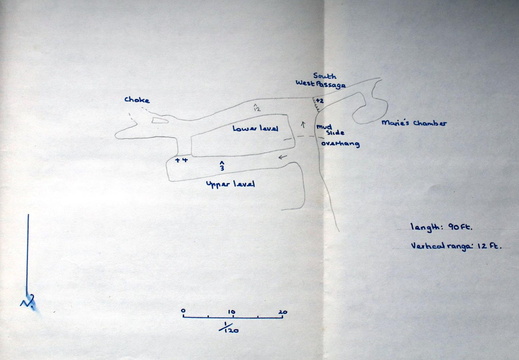 South
West Passage
Choke
+2
12
Marie's Chamber
Lower level
mud
slide
overhang
+4
3
Upper level
length: 90 Ft.
Vertical range: 12 Ft.
N
0 10 20
1/120